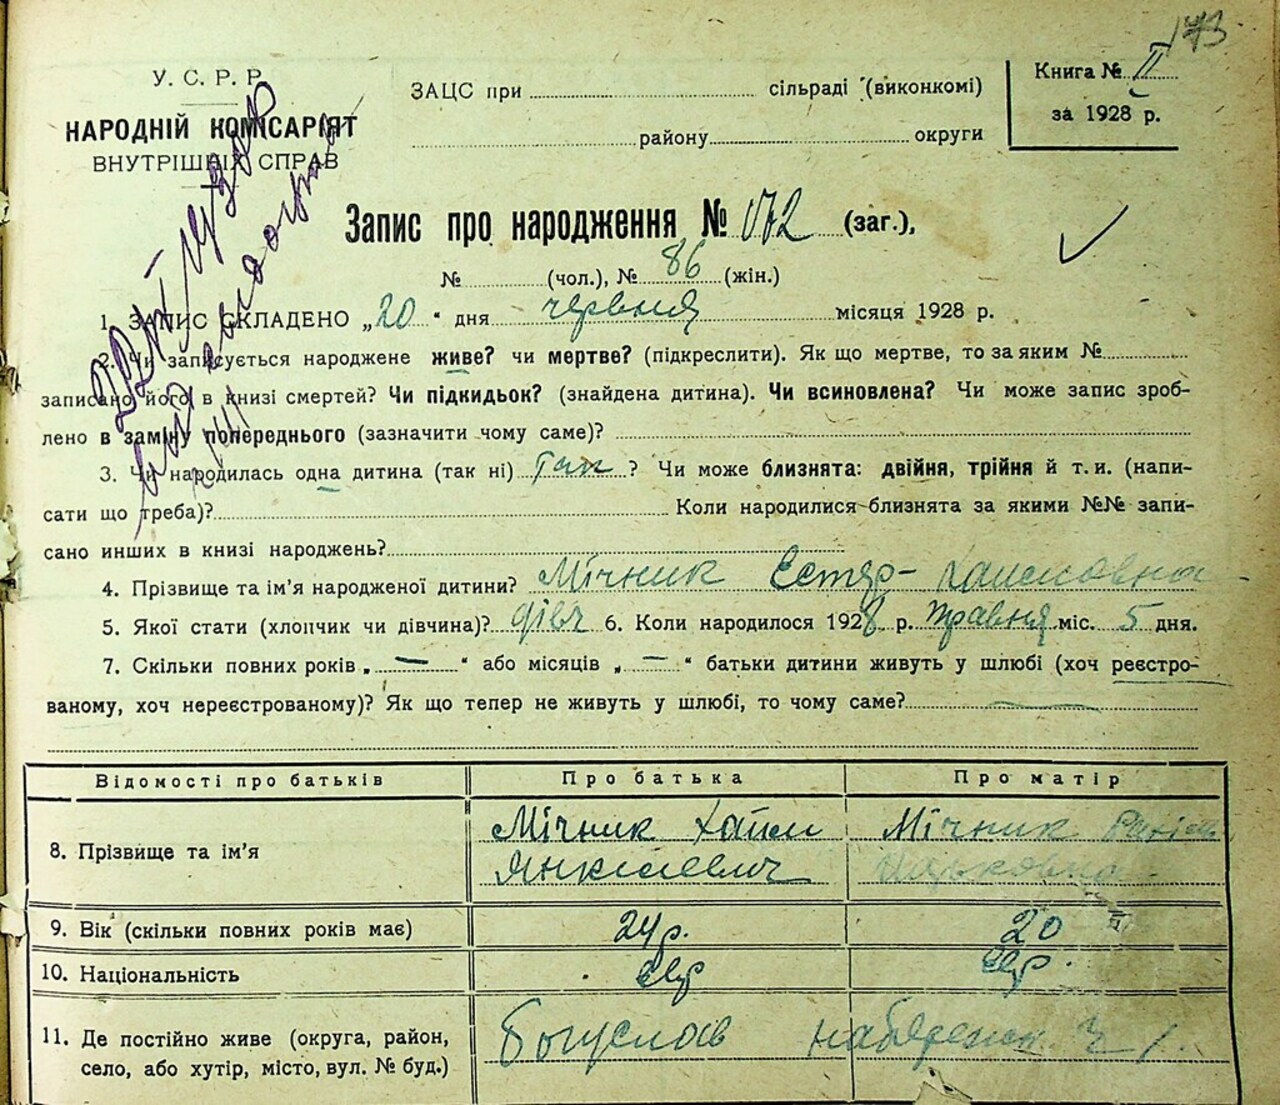 173
У. С. Р. Р.
НАРОДНІЙ КОМІСАРІЯТ
ВНУТРІШНІХ СПРАВ
ЗАЦС при сільраді (виконкомі)
району округи
Книга № II
за 1928 р.
Запис про народження № 172 (заг.),
№ (чол.), № 86 (жін.)
1. ЗАПИС СКЛАДЕНО „20“ дня червня місяця 1928 р.
2. Чи записується народжене живе? чи мертве? (підкреслити). Як що мертве, то за яким №
записано його в книзі смертей? Чи підкидьок? (знайдена дитина). Чи всиновлена? Чи може запис зроб-
лено в заміну попереднього (зазначити чому саме)?
3. Чи народилась одна дитина (так ні) так ? Чи може близнята: двійня, трійня й т. и. (напи-
сати що треба)? Коли народилися близнята за якими №№ запи-
сано инших в книзі народжень?
4. Прізвище та ім’я народженої дитини? Мічник Естер- Хаимовна
5. Якої стати (хлопчик чи дівчина)? дівч 6. Коли народилося 1928 р. травня міс. 5 дня.
7. Скільки повних років „—“ або місяців „—“ батьки дитини живуть у шлюбі (хоч реєстро-
ваному, хоч нереєстрованому)? Як що тепер не живуть у шлюбі, то чому саме?
Відомості про батьків Про батька Про матір
8. Прізвище та ім’я Мічник Хаим Мічник
Янкелевич
9. Вік (скільки повних років має) 24 р. 20
10. Національність евр евр.
11. Де постійно живе (округа, район,
село, або хутір, місто, вул. № буд.) Богуслав набережн